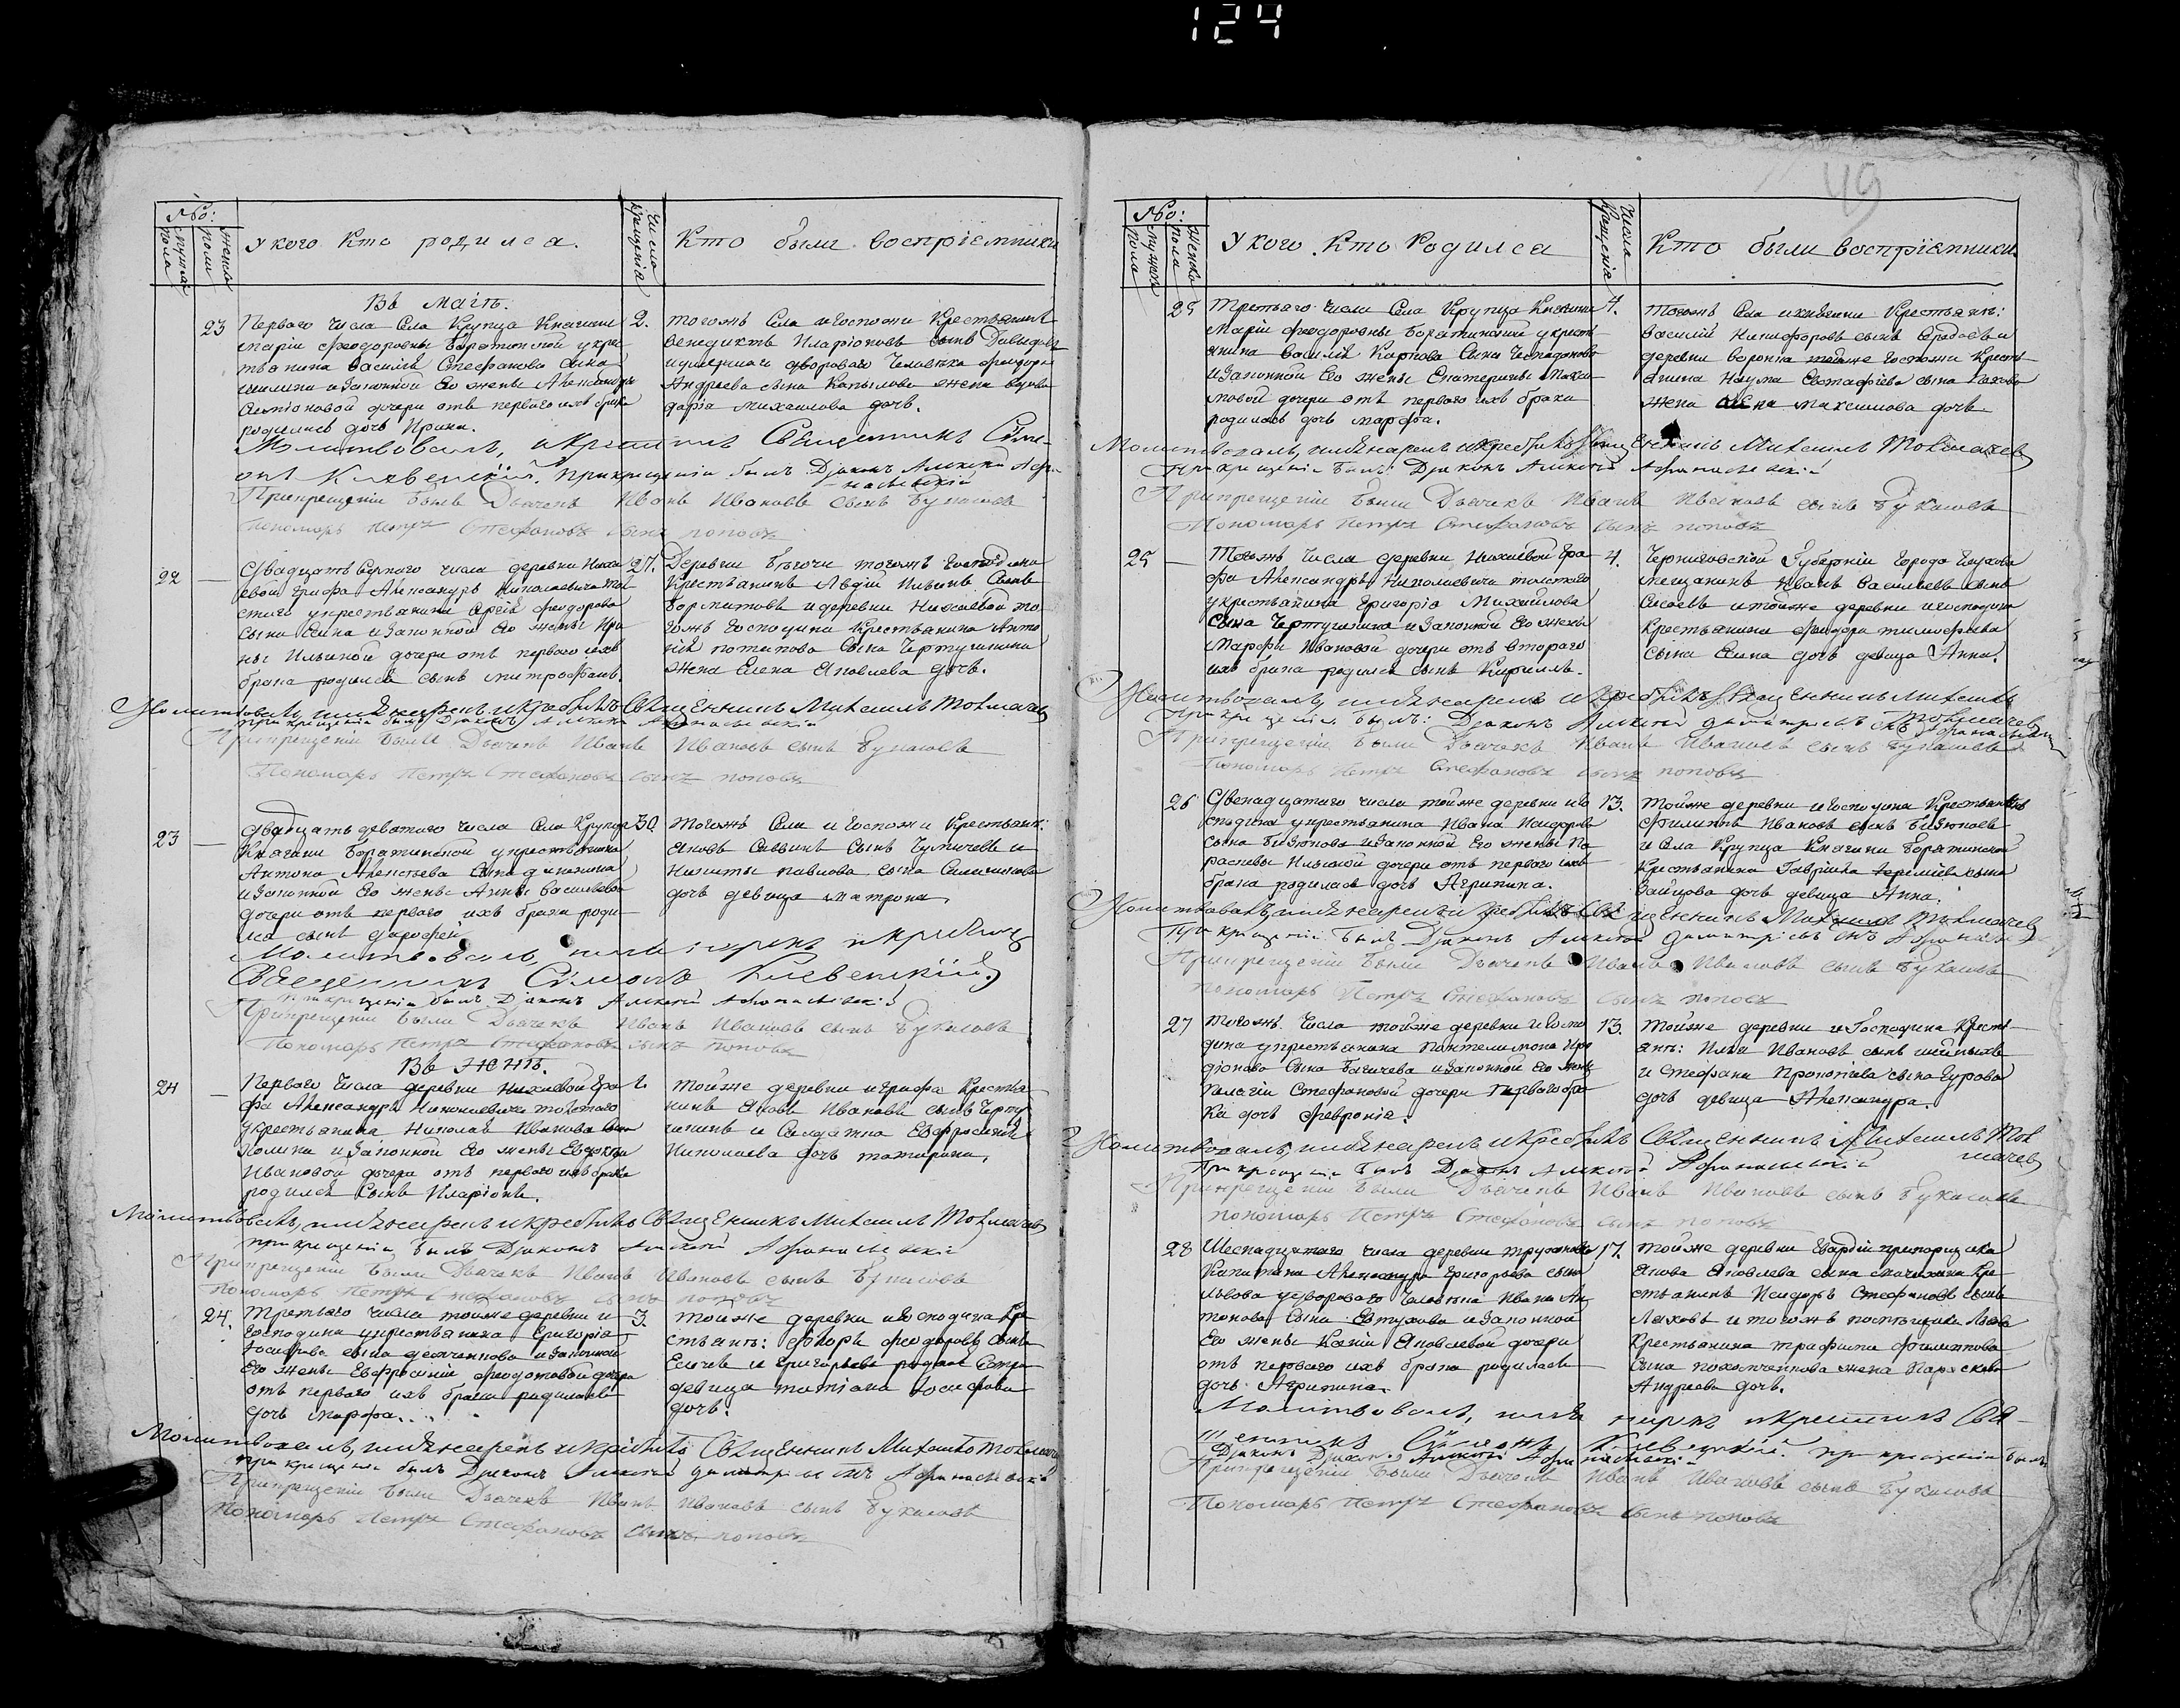 124
49
№:
мужска пола
женска пола
У кого Кто родился.
Число крещенія
Кто были воспріемники
Въ Маіѣ.
23 Перваго числа Села Крупца Княгини
Маріи Феодоровны Барятинской у крес
тьянина Василія Стефанова сына
и законной Его жены Александры
дочери отъ перваго ихъ брака
родилась дочь Ирина.
2.
тогожъ Села и Госпожи Крестьянинъ
Венедиктъ Иларіоновъ сынъ Давыдовъ
и умершаго двороваго Человѣка Феодора
Андреева сына Копылова жена вдова
дарія Михаилова дочь.
Молитвовалъ, и крестилъ Священникъ Симе-
онъ Кіевскій. При крещеніи былъ Діаконъ Алексѣй Афо-
насьевскій
При крещеніи былъ Дьячекъ Иванъ Ивановъ сынъ Букасовъ
Пономарь Петръ Стефановъ сынъ поповъ
22 —
Двадцать числа деревни Ниха
евой Графа Александра Николаевича тол
стаго у крестьянина Феодорова
сына и законной Его жены Ири
ны Ильиной дочери отъ перваго ихъ
брака родился сынъ митрофанъ.
27.
Деревни тогожъ Господина
Крестьянинъ Ильинъ Сынъ
и деревни Нихаевой то
гожъ Господина Крестьянина Анто
на потапова Сына Чертушкина
жена Елена Яковлева дочь.
Молитвовалъ, имя нарекъ и крестилъ Священникъ Михаилъ Толмачевъ
При крещеніи былъ Діаконъ Алексѣй Афонасьевскій
При крещеніи были Дьячекъ Иванъ Ивановъ сынъ Букасовъ
Пономарь Петръ Стефановъ сынъ поповъ
23 —
двадцать девятаго числа Села Крупца
Княгини Барятинской у крестьянина
Антона Алексѣева Сына
и законной Его жены Анны Васильевой
дочери отъ перваго ихъ брака роди
лся сынъ дорофей.
30.
тогожъ Села и Госпожи Крестьян:
Яковъ Саввинъ Сынъ и
Никиты павлова сына
дочь девица матрона.
Молитвовалъ, имя нарекъ и крестилъ
Священникъ Симеонъ Кіевскій.
При крещеніи былъ Діаконъ Алексѣй Афонасьевскій
При крещеніи были Дьячекъ Иванъ Ивановъ сынъ Букасовъ
Пономарь Петръ Стефановъ сынъ поповъ
Въ Юнѣ.
24 —
Перваго числа деревни Нихаевой Гра
фа Александра Николаевича толстаго
у крестьянина Николая Иванова сына
и законной Его жены Евдокіи
Ивановой дочери отъ перваго ихъ брака
родился Сынъ Иларіонъ.
1.
тойже деревни и Графа Крестья
нинъ Яковъ Ивановъ сынъ Черту
шкинъ и Солдатка Евфросинія
Николаева дочь татарина.
Молитвовалъ, имя нарекъ и крестилъ Священникъ Михаилъ Толмачевъ
при крещеніи былъ Діаконъ Алексѣй Афонасьевскій
При крещеніи были Дьячекъ Иванъ Ивановъ сынъ Букасовъ
Пономарь Петръ Стефановъ сынъ поповъ
24.
Третьяго числа тойже деревни и
Господина у крестьянина Григорія
Іосифова сына и законной
Его жены Евфросиніи Феодотовой дочери
отъ перваго ихъ брака родилась
дочь марфа.
3.
тойже деревни и Господина Кре
стьянъ: Феодоровъ Сынъ
и Григорьева сестра
девица татіана Іосифова
дочь.
Молитвовалъ, имя нарекъ и крестилъ Священникъ Михаилъ Толмачевъ
при крещеніи былъ Діаконъ Алексѣй Димитріевъ снъ Афонасьевскій
При крещеніи были Дьячекъ Иванъ Ивановъ сынъ Букасовъ
Пономарь Петръ Стефановъ сынъ поповъ
№:
мужска пола
женска пола
У кого Кто Родился
Числа Крещенія
Кто были воспріемники.
25
Третьяго числа Села Крупца Княгини
Маріи Феодоровны Барятинской у крестья
нина Василія Карпова Сына
и законной Его жены Екатерины Макси
мовой дочери отъ перваго ихъ брака
родилась дочь марфа.
4.
тогожъ Села и княгини Крестьянъ:
Василій Никифоровъ сынъ и
деревни тойже Госпожи Кресть
янина Наума Евстафіева сына
жена Максимова дочь.
Молитвовалъ, имя нарекъ и крестилъ Священникъ Михаилъ Толмачевъ
При крещеніи былъ: Діаконъ Алексѣй Афонасьевскій
При крещеніи были Дьячекъ Иванъ Ивановъ сынъ Букасовъ
Пономарь Петръ Стефановъ сынъ поповъ
25 —
Тогожъ числа деревни Нихаевой Гра
фа Александра Николаевича толстаго
у крестьянина Григорія Михайлова
Сына Чертушкина и законной Его жены
Марфы Ивановой дочери отъ втораго
ихъ брака родился сынъ Кириллъ.
4.
Черниговской Губерніи города Глухова
мещанинъ Иванъ Васильевъ сынъ
и тойже деревни и господина
Крестьянина Феодора тимофеева
сына дочь девица Анна.
Молитвовалъ, имя нарекъ и крестилъ Священникъ Михаилъ
Толмачевъ
При крещеніи былъ: Діаконъ Алексѣй Димитріевъ снъ Афонасьевскій
При крещеніи были Дьячекъ Иванъ Ивановъ сынъ Букасовъ
Пономарь Петръ Стефановъ сынъ поповъ
26
Двенадцатаго числа тойже деревни и го
сподина у крестьянина Ивана Исидорова
сына Бизюкова и законной Его жены Па
раскевы Ильиной дочери отъ перваго ихъ
брака родилась дочь Агрипина.
13.
тойже деревни и Господина Крестьянинъ
Филиппъ Ивановъ сынъ Бизюковъ
и Села Крупца Княгини Барятинской
Крестьянина Гавріила Еремѣева сына
Зайцова дочь девица Анна.
Молитвовалъ, имя нарекъ и крестилъ Священникъ Михаилъ Толмачевъ
При крещеніи былъ Діаконъ Алексѣй Димитріевъ снъ Афонасьевскій
При крещеніи были Дьячекъ Иванъ Ивановъ сынъ Букасовъ
пономарь Петръ Стефановъ сынъ поповъ
27
тогожъ числа тойже деревни и Госпо
дина у крестьянина Пантелимона Иро
діонова Сына и законной Его жены
Пелагіи Стефановой дочери перваго бра
ка дочь Февронія.
13.
тойже деревни и Господина Кресть
янъ: Илья Ивановъ сынъ
и Стефана Прокопіева сына Гурова
дочь девица Александра.
Молитвовалъ, имя нарекъ и крестилъ Священникъ Михаилъ Тол
мачевъ
При крещеніи былъ Діаконъ Алексѣй Афонасьевскій
При крещеніи были Дьячекъ Иванъ Ивановъ сынъ Букасовъ
пономарь Петръ Стефановъ сынъ поповъ
28
Шеснадцатаго числа деревни
Капитана Александра Григорьева сына
Львова у двороваго Человѣка Ивана Ан
тонова Сына и законной
Его жены Яковлевой дочери
отъ перваго ихъ брака родилась
дочь Агрипина.
17.
тойже деревни Гвардіи прапорщика
Якова Яковлева сына Кре
стьянинъ Исидоръ Стефановъ сынъ
и тогожъ помѣщика Львова
Крестьянина трофима Филиппова
сына жена Параскева
Андреева дочь.
Молитвовалъ, имя нарекъ и крестилъ Свя-
щенникъ Симеонъ Кіевскій. при крещеніи былъ
Діаконъ Алексѣй Афонасьевскій
При крещеніи были Дьячекъ Иванъ Ивановъ сынъ Букасовъ
Пономарь Петръ Стефановъ сынъ поповъ